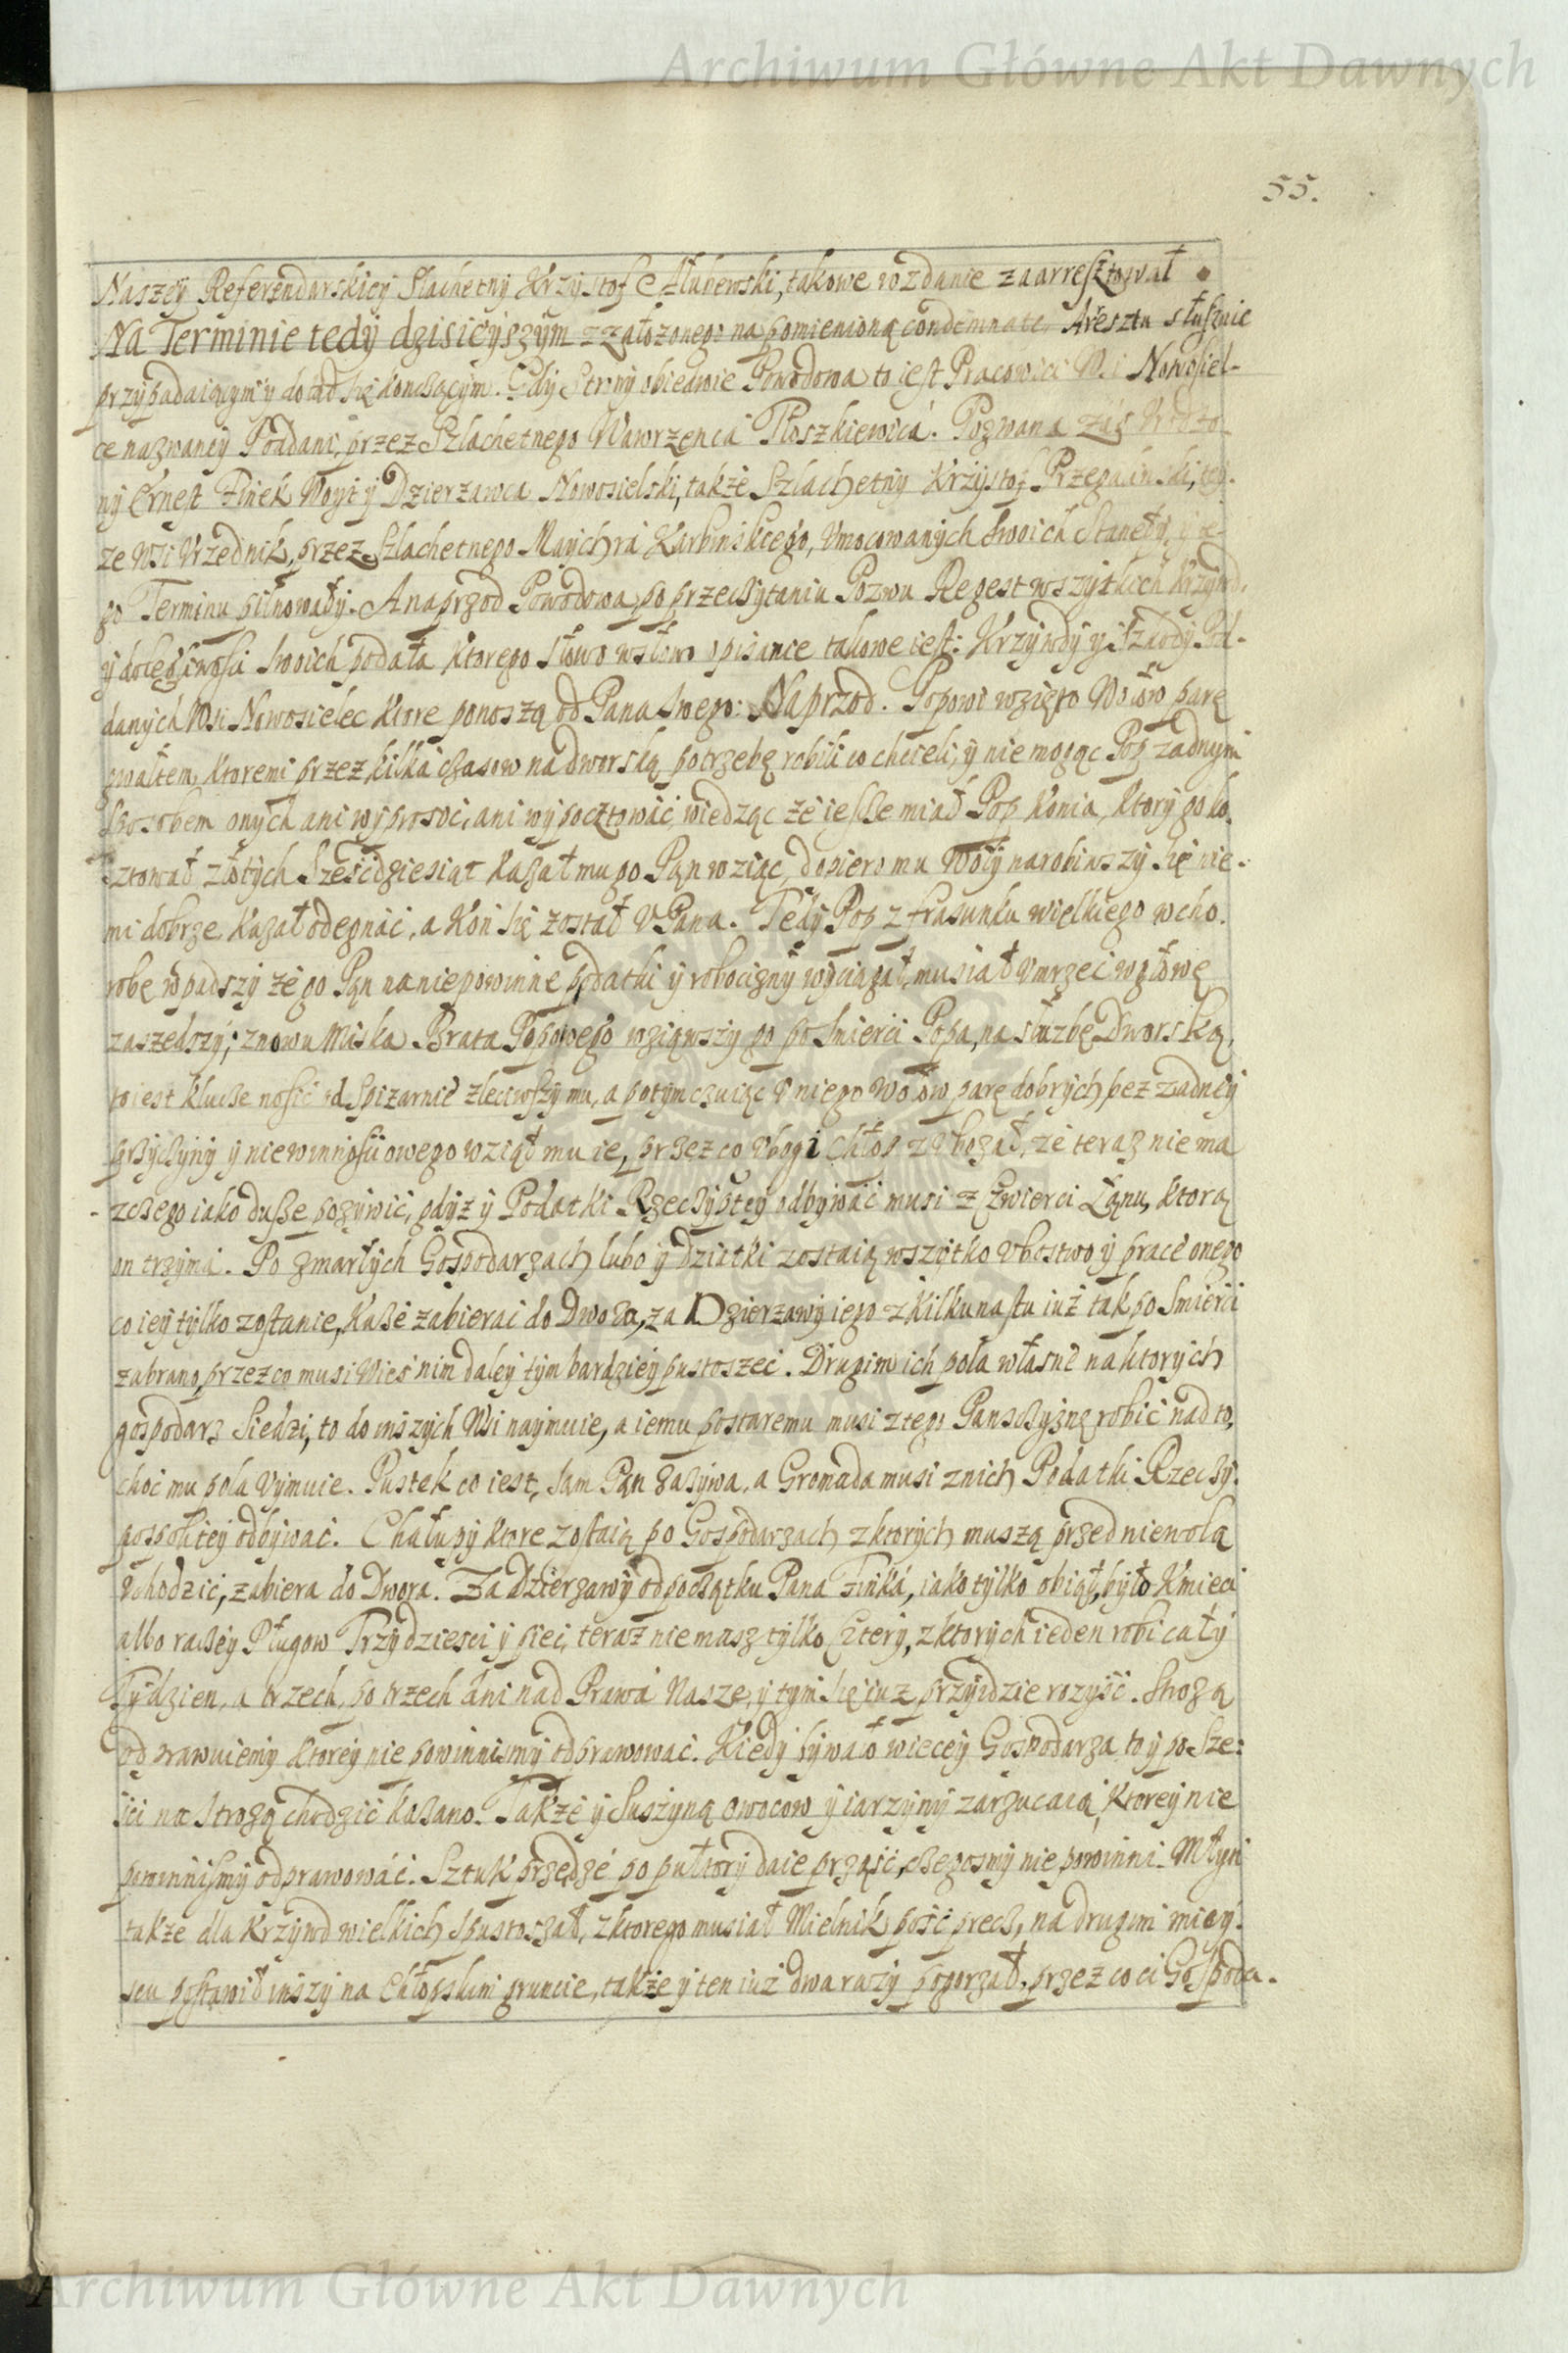 Archiwum Główne Akt Dawnych
55.
Naszey Referendarskiey Slachetny Krzysztof Człuhewski, takowe rozdanie zaarresztował
Na Terminie tedy dzisieyszym z załozonego na pomienioną condemnatę Aresztu słusznie
przypadaiącym y dotąd się konczącym. Gdy Strony obiedwie Powodowa to iest Pracowici Wsi Nowosiel-
ce nazwaney Poddani, przez Szlachetnego Wawrzenca Płoszkiewica. Pozwana zaś Urodzo-
ny Ernest Finek Woyt y Dzierzawca Nowosielski, także Szlachetny Krzysztof Przegalinski, tey-
ze Wsi Urzednik, przez Szlachetnego Maychra Karbinskiego, Umocowanych swoich Stanęły, y te-
go Terminu pilnowały. A naprzod Powodowa po przeczytaniu Pozwu Regest wszytkich Krzywd,
y dolegliwosci swoich podała ktorego słowo wsłowo opisanie takowe iest: Krzywdy y Szkody Pod-
danych Wsi Nowosielec ktore ponoszą od Pana swego: Naprzod. Popowi wzięto Wołow parę
gwałtem, ktoremi przez kilka czasow na dworską potrzebę robili co chcieli, y nie mogąc Pop zadnym
sposobem onych ani wyprosić, ani wypocztować, wiedząc że ieszcze miał Pop Konia, ktory go ko-
sztował złotych Sześcdziesiąt kazał mu go Pąn wziąc, dopiero mu Woły narobiwszy się nie-
mi dobrze, kazał odegnać, a Koń się został u Pana. Tedy Pop z frasunku wielkiego w cho-
robę wpadszy że go Pąn na niepowinne podatki y robocizny wyciągał, musiał umrzeć w głowę
zaszedszy; znowu Miska Brata Popowego wziąwszy go po smierci Popa, na służbę Dworską,
to iest klucze nosić od Spizarnie zleciwszy mu, a potym czuiąc u niego Wołow parę dobrych, bez zadney
przyczyny y niewinnosci owego wziął mu ie, przez co ubogi Chłop zubozał, że teraz nie ma
zczego iako dusze pozywić, gdyż y Podatki Rzeczyptey odbywać musi z czwierci Łąnu, ktorą
on trzyma. Po zmarłych Gospodarzach lubo y dziatki zostaią wszytko ubostwo y pracę onego
co iey tylko zostanie, każe zabierać do Dwora, za Dzierzawy iego z kilkunastu iuż tak po Smierci
zabrano, przez co musi Wieś nim daley tym bardziey pustoszeć. Drugim ich pola własne na ktorych
gospodarz siedzi, to do inszych Wsi naymuie, a iemu postaremu musi z tego Panszczyznę robić nad to,
choć mu pola uymuie. Pustek co iest, sam Pąn zazywa, a Gromada musi z nich Podatki Rzeczy-
pospolitey odbywać. Chałupy ktore zostaią po Gospodarzach z ktorych muszą przed niewolą
uchodzić, zabiera do Dwora. Za dzierzawy od początku Pana Finka, iako tylko obiął, było Kmieci
albo raczey Pługow Trzydzieści y pięć, teraz nie masz tylko Cztery, z ktorych ieden robi cały
Tydzien, a trzech, po trzech dni nad Prawa Nasze, y tym się iuz przyidzie rozyść. Strożą
odprawuiemy ktorey nie powinnismy odprawować. Kiedy bywało więcey Gospodarza to y po Sze-
ści na Strozą chodzić kazano. Także y Suszyną owocow y iarzyny zarzucaią, ktorey nie
powinnismy odprawować. Sztuk przędze po pułtory daie prząść, czegosmy nie powinni. Młyn
także dla Krzywd wielkich spustoszał, z ktorego musiał Mielnik pość precz, na drugim miey-
scu postawił inszy na Chłopskim gruncie, także y ten iuż dwa razy pogorzał, przez co ci Gospoda-
Archiwum Główne Akt Dawnych